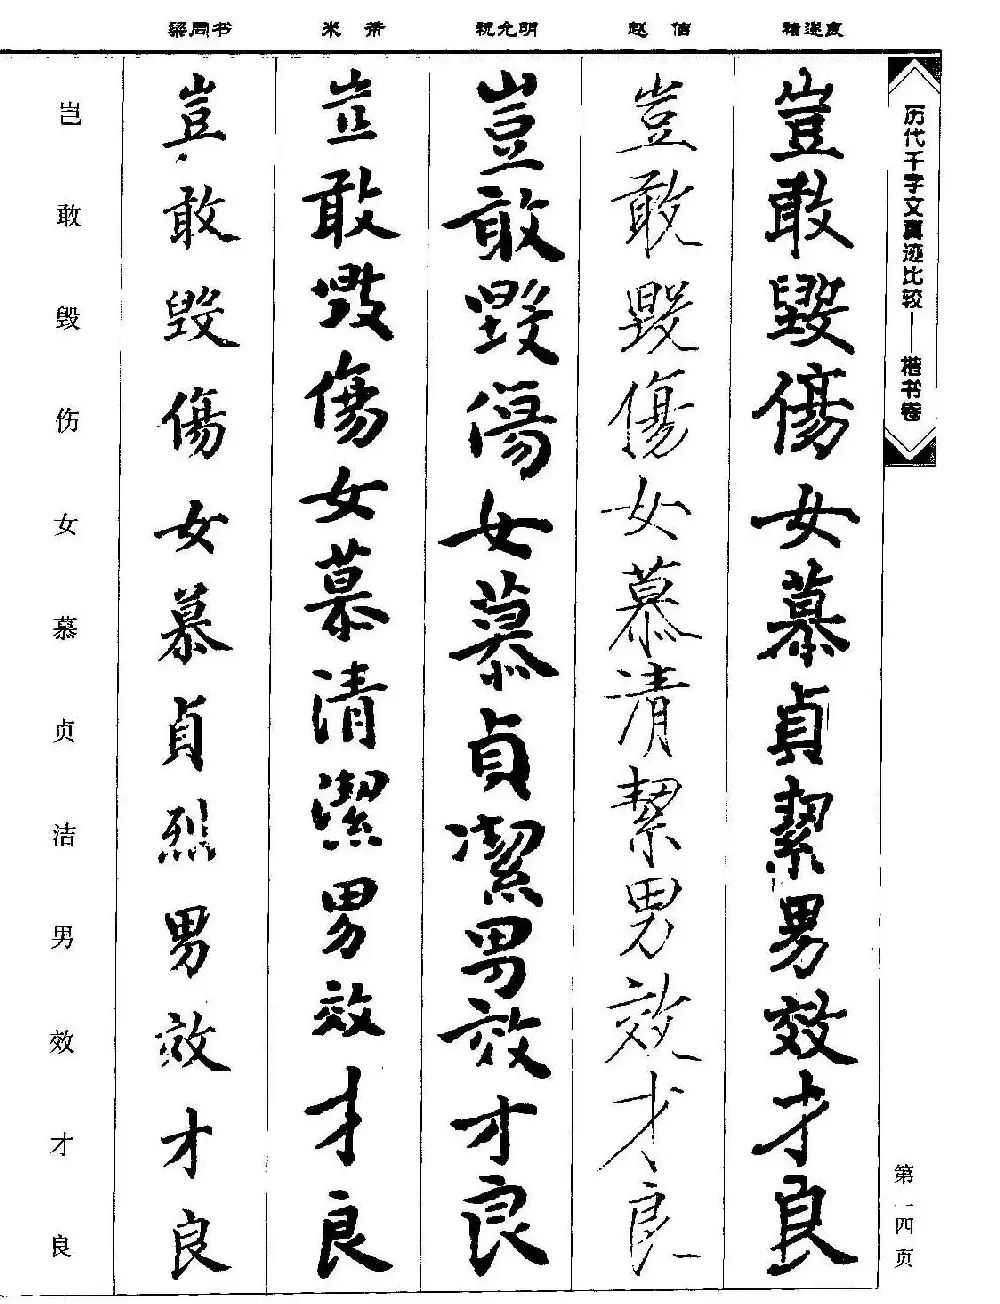 历代千字文真迹比较——楷书卷
第一四页
褚遂良
豈敢毀傷女慕貞絜男效才良
赵佶
豈敢毀傷女慕清絜男效才良
祝允明
豈敢毀傷女慕貞潔男效才良
米芾
豈敢毀傷女慕清潔男效才良
梁同书
豈敢毀傷女慕貞烈男效才良
岂敢毁伤女慕贞洁男效才良